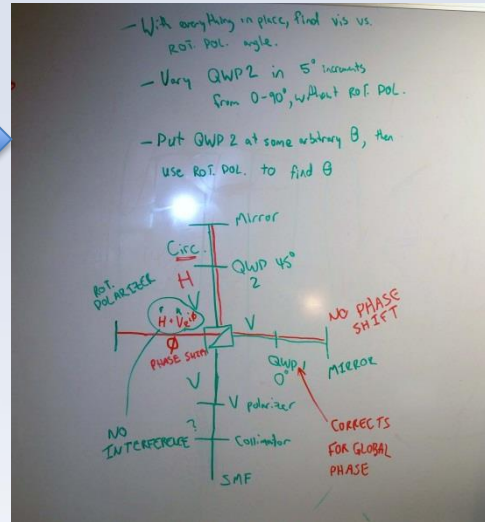 - With everything in place, find vis vs.
ROT. POL. angle.
- Vary QWP2 in 5° increments
from 0-90°, without ROT. POL.
- Put QWP 2 at some arbitrary θ, then
use ROT. POL. to find θ
Mirror
Circ.
QWP 45°
2
H
V
ROT.
POLARIZER
H + V
NO PHASE
SHIFT
V
Φ
PHASE SHIFT
QWP 1
0°
MIRROR
V
V polarizer
?
NO
INTERFERENCE
Collimator
CORRECTS
FOR GLOBAL
PHASE
SMF